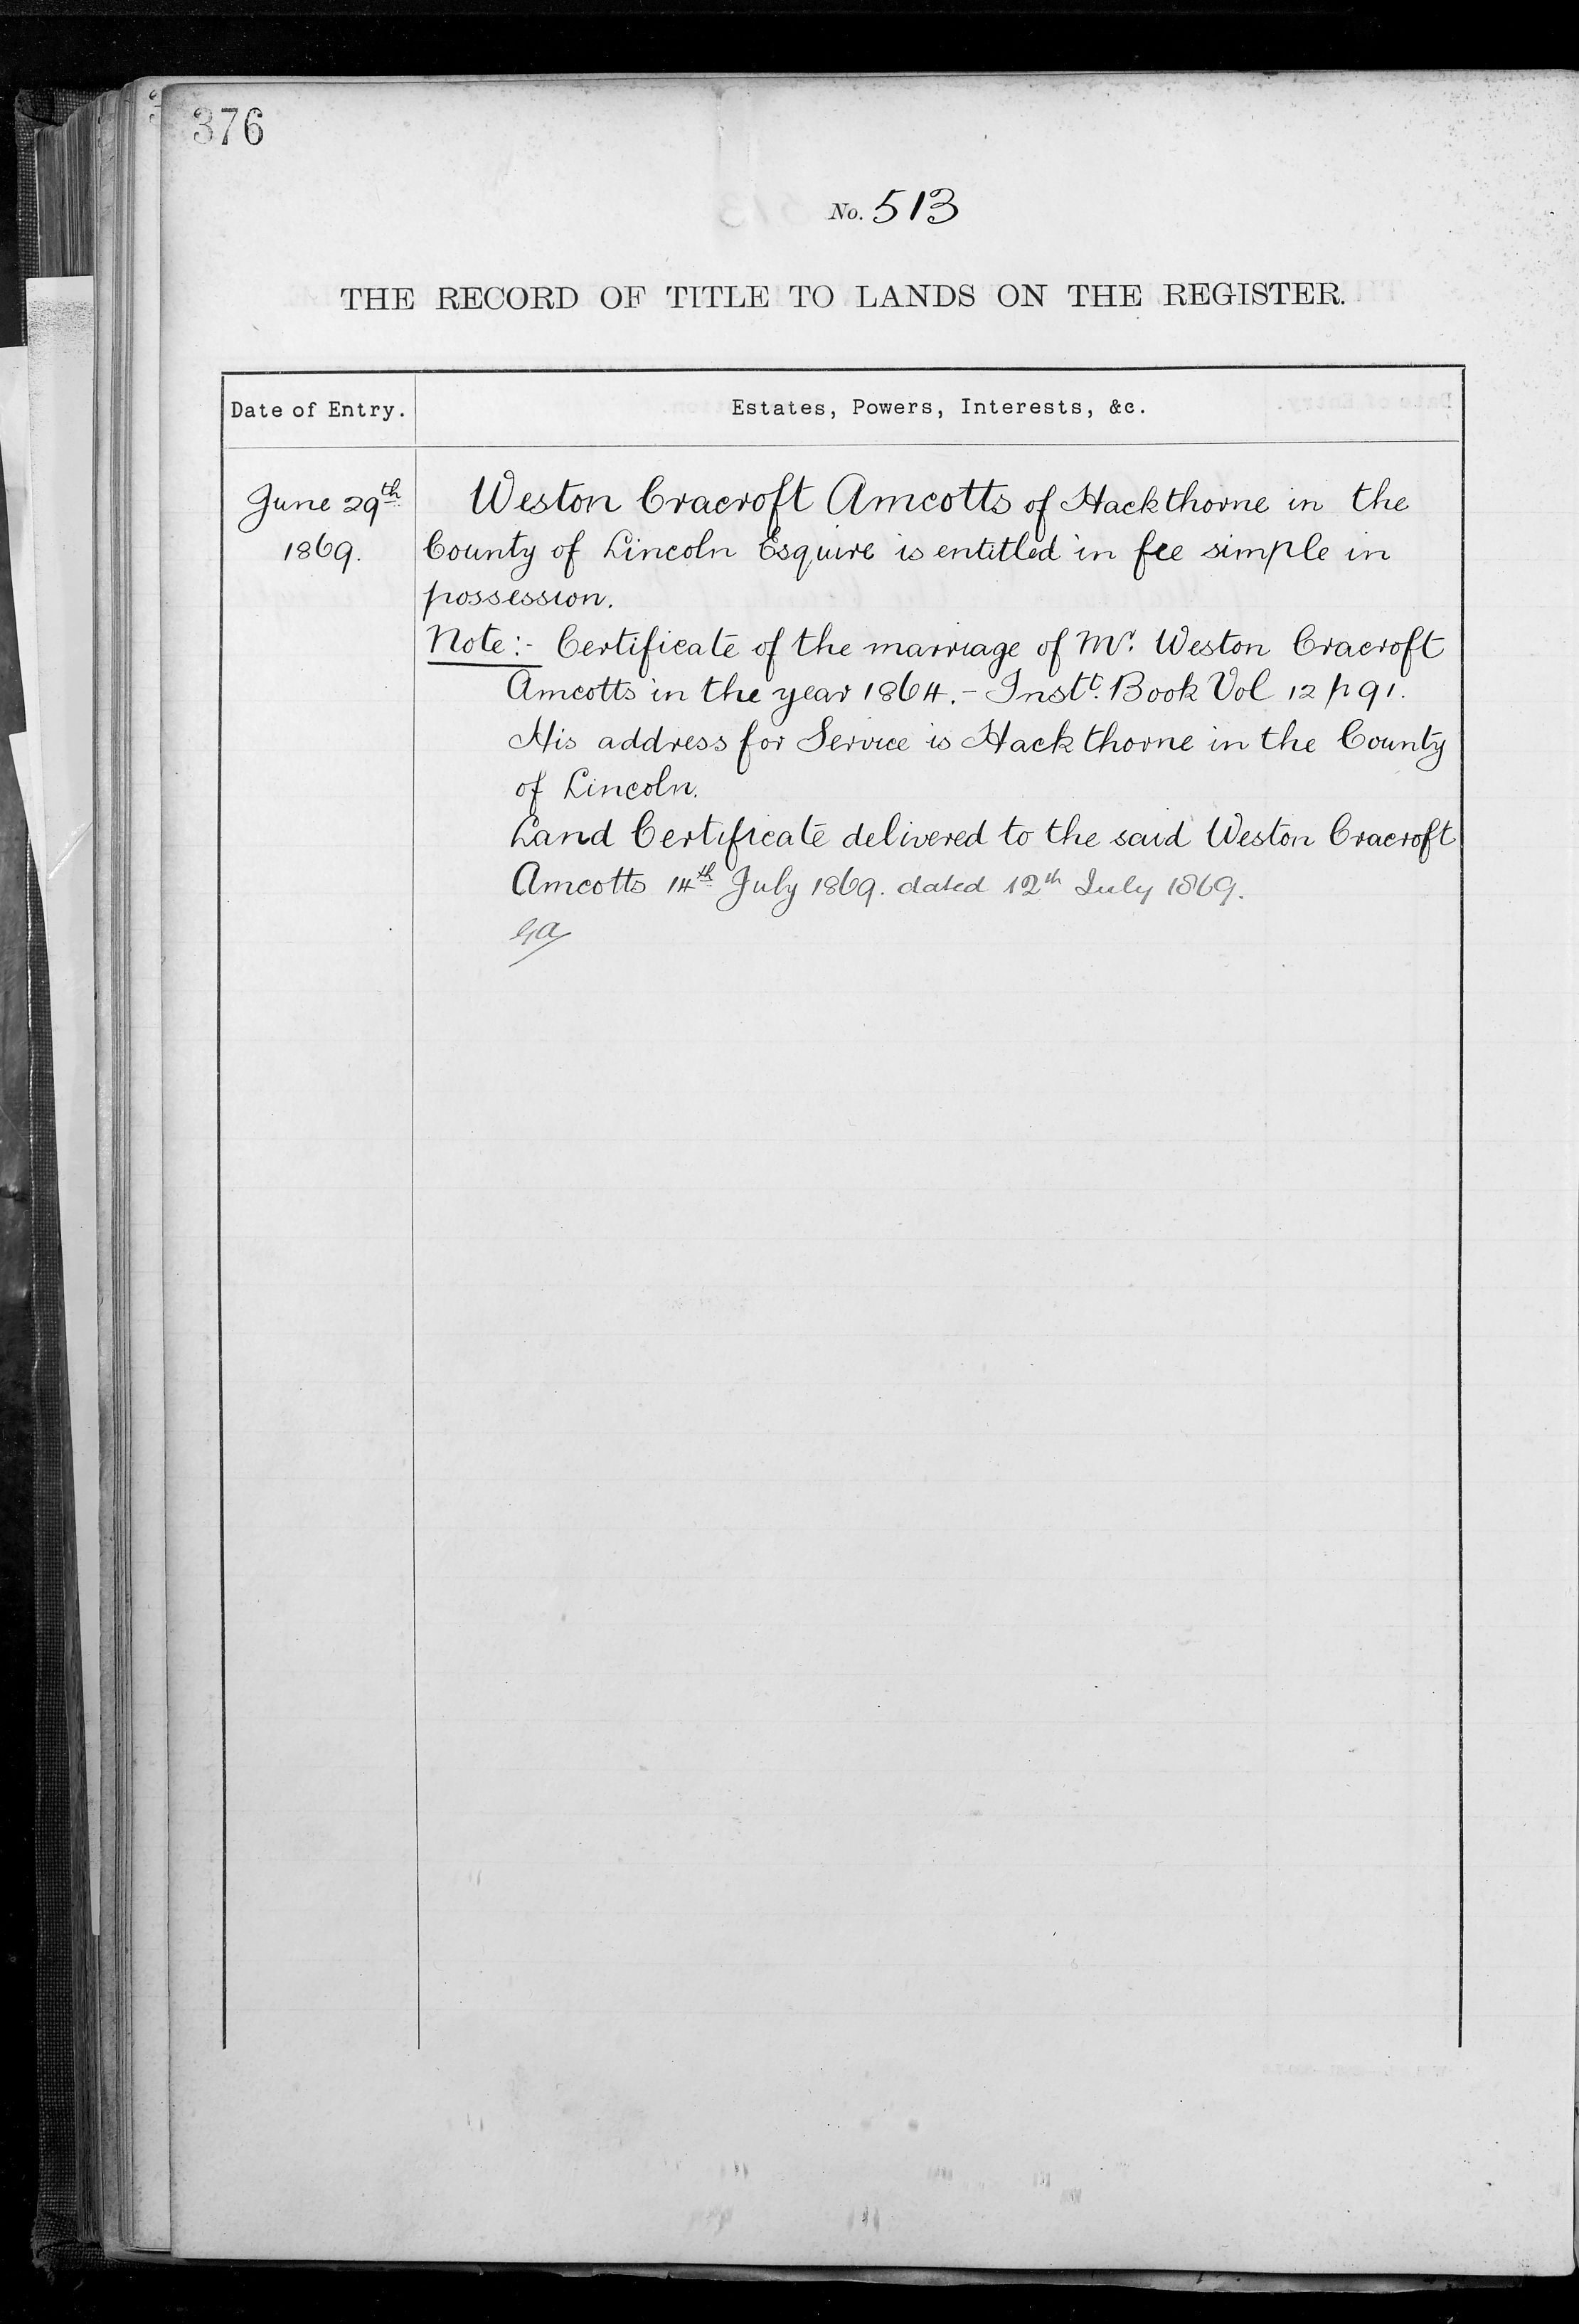 376
No. 513
THE RECORD OF TITLE TO LANDS ON THE REGISTER.
Date of Entry.
Estates, Powers, Interests, &c.
June 29th
1869.
Weston Cracroft Amcotts of Hackthorne in the
County of Lincoln Esquire is entitled in fee simple in
possession.
Note:- Certificate of the marriage of Mr. Weston Cracroft
Amcotts in the year 1864.- Inst. Book Vol 12 p 91.
His address for Service is Hackthorne in the County
of Lincoln.
Land Certificate delivered to the said Weston Cracroft
Amcotts 14th July 1869. dated 12th July 1869.